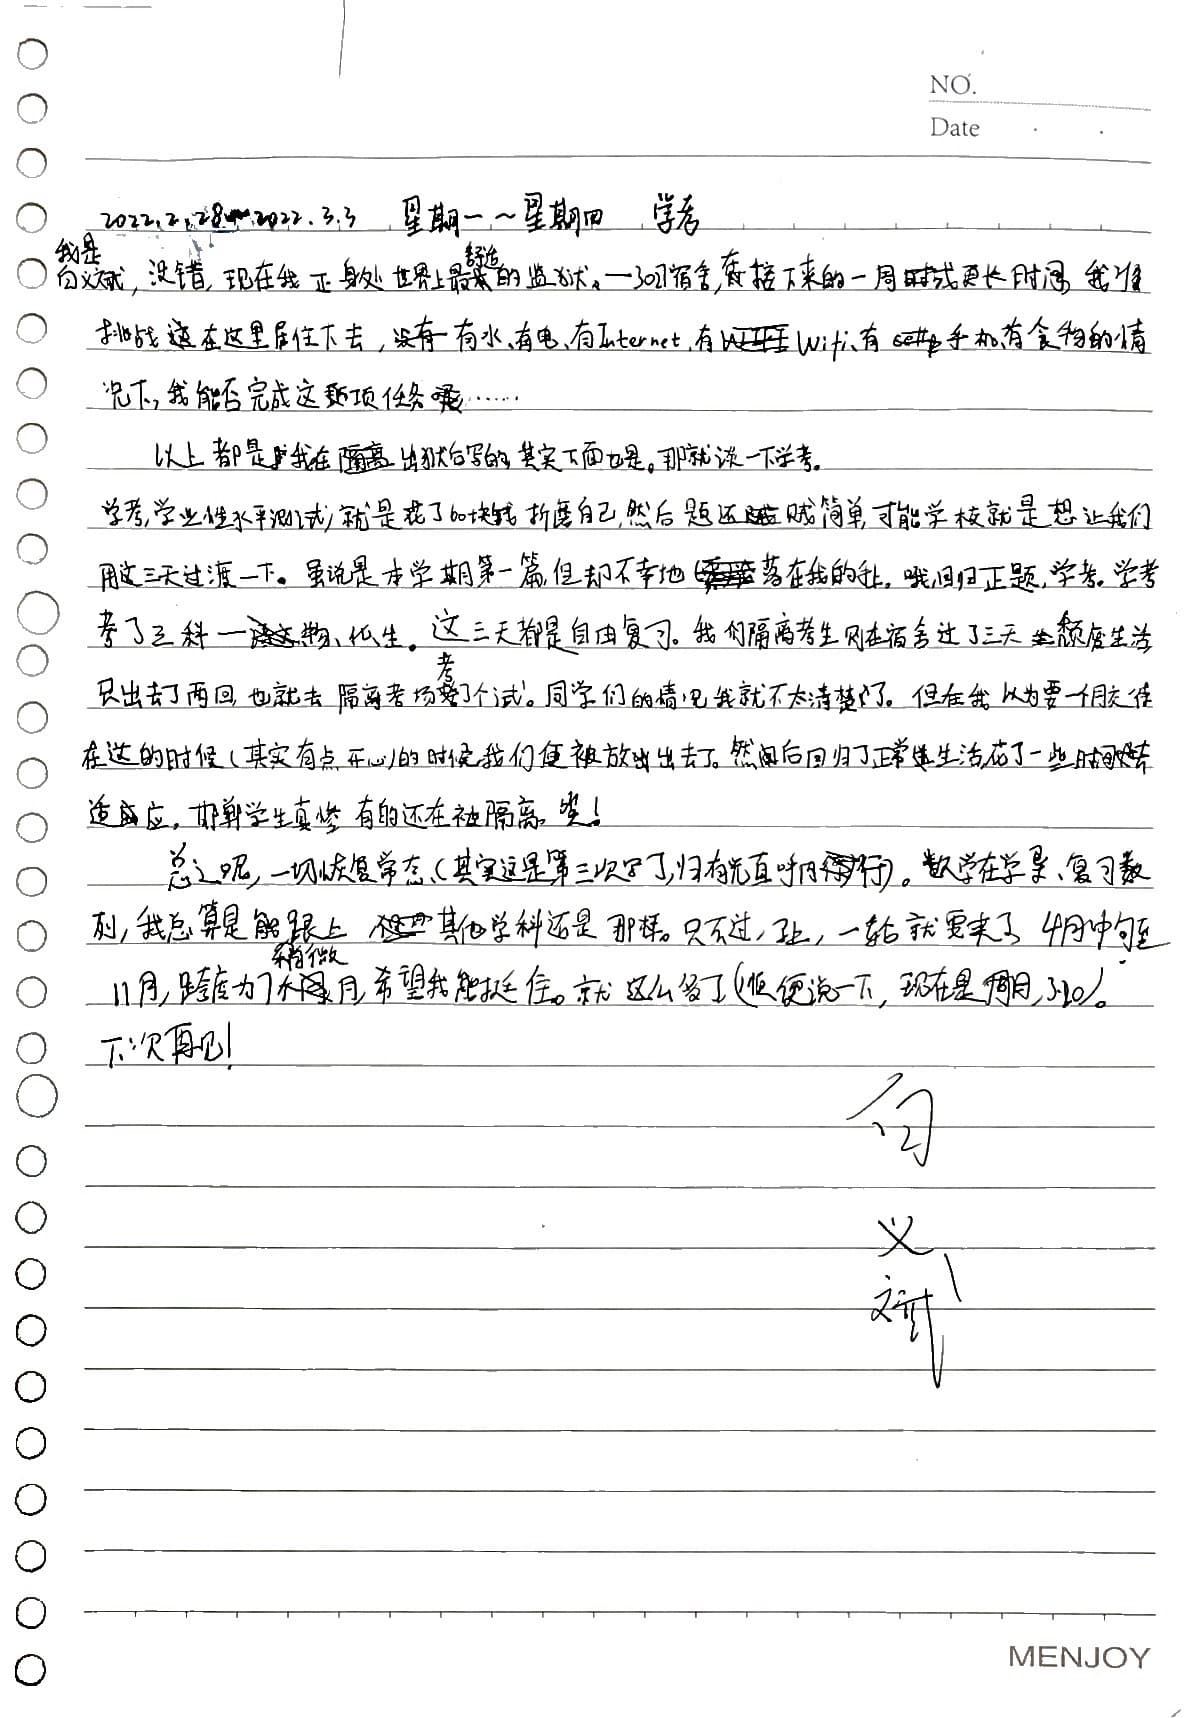 NO.
Date
2022.2.28~2022.3.3 星期一~星期四 学考
我是
舒适
白义斌，没错，现在我正身处世界上最的监狱。—302宿舍，在接下来的一周或更长时间我准
挑战在这里居住下去，没有有水、有电、有Internet、有Wifi、有手机、有食物的情
况下，我能否完成这项任务……
以上都是我在隔离出狱后写的，其实下面也是。那就谈一下学考。
学考，学业性水平测试，就是花了60块钱折磨自己，然后题还贼简单，可能学校就是想让我们
用这三天过渡一下。虽说是本学期第一篇，但却不幸地落在我的手上。哦，归归正题，学考。学考
考了三科—物、化、生。这三天都是自由复习。我们隔离考生则在宿舍过了三天颓废生活
考
只出去了两回，也就去隔离考场了个试。同学们的情况我就不太清楚了。但在我以为要一个月交待
在这的时候（其实有点开心）的时候，我们便被放出去了。然后回归了正常生活，花了一些时间
适应。邯郸学生真惨，有的还在被隔离。哭！
总之呢，一切恢复常态、（其实这是第三次写了，归有光直呼内行）。数学在学导、复习数
列，我总算是能跟上 其他学科还是那样。只不过，一轮就要来了 4月中旬至
稍微
11月，跨度为7个月，希望我能挺住。就这么多了（顺便说一下，现在是周日，3.20）。
下次再见！
白
义
斌
MENJOY